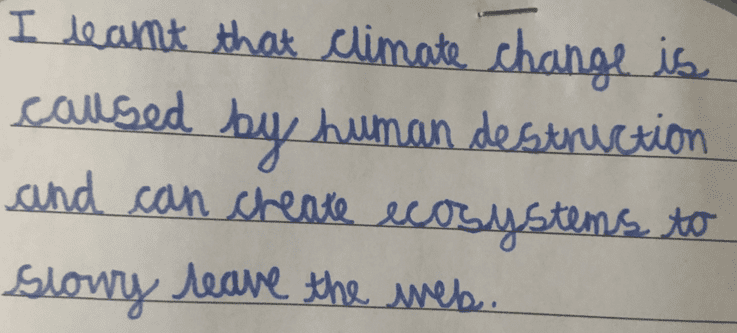 I learnt that climate change is
caused by human destruction
and can create ecosystems to
slowy leave the web.